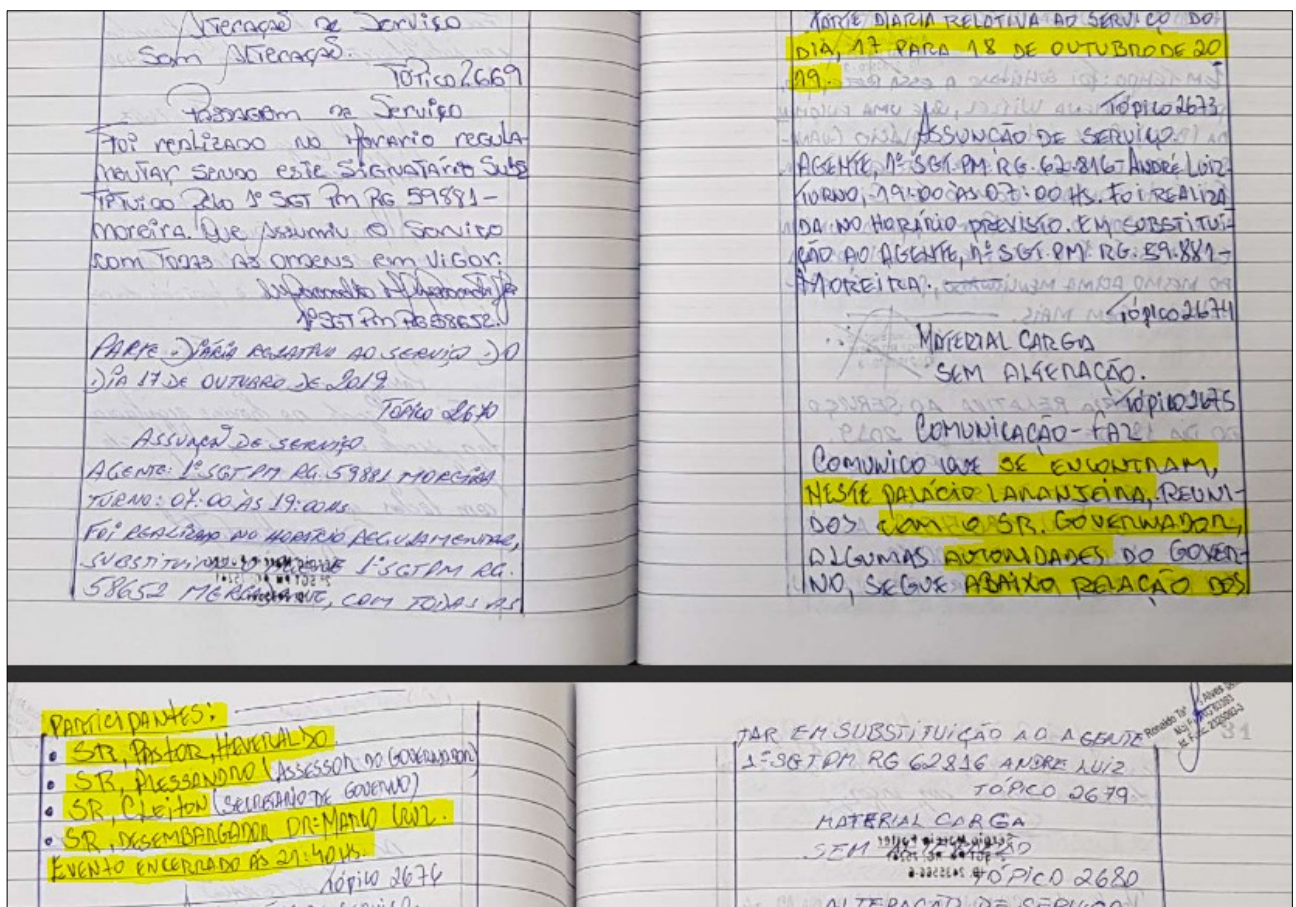 Alteração de Serviço
Sem Alteração.
Tópico 2669
Passagem de Serviço
Foi realizado no Horario regula-
mentar sendo este Signatário Subs
tituido Pelo 1º SGT PM RG 59881-
moreira. Que Assumiu o Serviço
com Todas As ordens em vigor.
1º SGT Pm RG 58652.
PARTE DIÁRIA RELATIVA AO SERVIÇO DO
DIA 17 DE OUTUBRO DE 2019
TÓPICO 2670
ASSUNÇÃO DE SERVIÇO
AGENTE: 1º SGT PM RG. 59881 MOREIRA
TURNO: 07:00 ÀS 19:00HS
FOI REALIZADO NO HORÁRIO REGULAMENTAR,
SUBSTITUINDO 1º SGT PM RG.
58652 COM TODAS AS
PARTE DIARIA RELATIVA AO SERVIÇO DO
DIA, 17 PARA 18 DE OUTUBRO DE 20
19.
Tópico 2673
ASSUNÇÃO DE SERVIÇO.
AGENTE, 1º SGT. PM. RG. 62.816- ANDRÉ LUIZ
TURNO, 19:00 ÀS 07:00 HS. FOI REALIZA
DA NO HORÁRIO PREVISTO. EM SUBSTITUI-
ÇÃO AO AGENTE, 1º SGT. PM. RG. 59.881-
MOREIRA.
Tópico 2674
MATERIAL CARGA
SEM ALTERAÇÃO.
Tópico 2675
COMUNICAÇÃO - FAZ
COMUNICO QUE SE ENCONTRAM,
NESTE PALÁCIO LARANJEIRA, REUNI-
DOS COM O SR. GOVERNADOR,
ALGUMAS AUTORIDADES DO GOVER-
NO, SEGUE ABAIXO RELAÇÃO DOS
PARTICIPANTES:
• SR, PASTOR, HEVERALDO
• SR, ALESSANDRO (ASSESSOR DO GOVERNADOR)
• SR, CLEITON (SECRETARIO DE GOVERNO)
• SR, DESEMBARGADOR DRº MARIO CRUZ.
EVENTO ENCERRADO ÀS 21:40HS.
Tópico 2676
TAR EM SUBSTITUIÇÃO AO AGENTE
1º SGT PM RG 62816 ANDRE LUIZ
TÓPICO 2679
MATERIAL CARGA
SEM ALTERAÇÃO
TÓPICO 2680
ALTERAÇÃO DE SERVIÇO
31